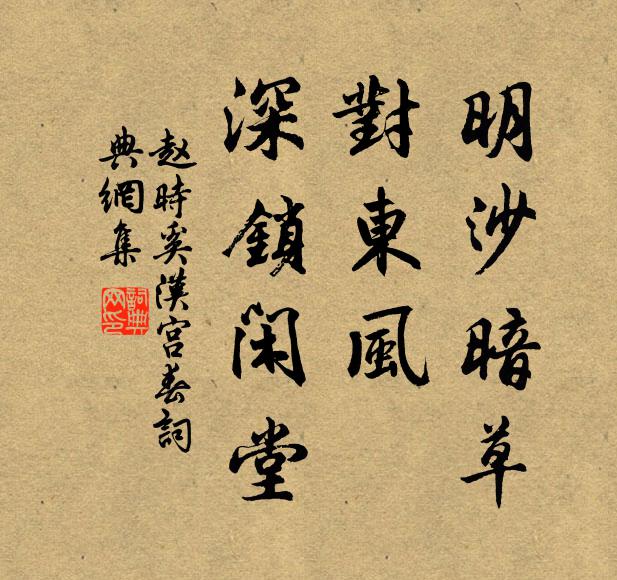 明沙暗草
對東風
深鎖閑堂
赵時奚漢宫春詞
典網集
詞典網印